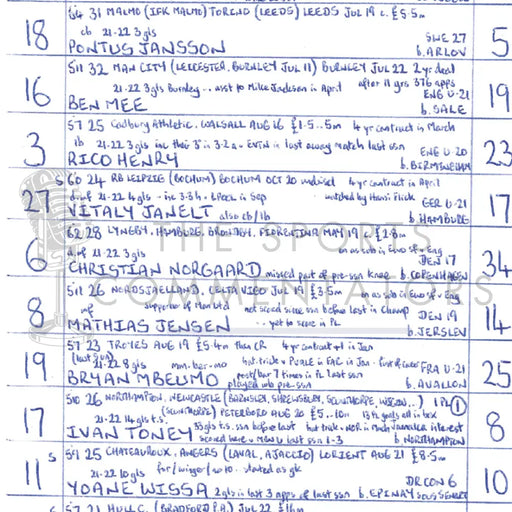 6'4 31 MALMO (IFK MALMO) TORINO (LEEDS) LEEDS JUL 19 c. £5.5m
18 cb 21-22 3gls SWE 27 5
PONTUS JANSSON b. ARLOV
5'11 32 MAN CITY (LEICESTER, BURNLEY JUL 11) BURNLEY JUL 22 2yr deal
16 21-22 3gls Burnley .. asst to Mike Jackson in April after 11 yrs 376 apps ENG U-21 19
BEN MEE b. SALE
5'7 25 Cadbury Athletic. WALSALL AUG 16 £1.5..5m 4yr contract in March
3 lb 21-22 3gls inc this 3 in 3-2 a - EVTN is last away match last ssn ENG U-20 23
RICO HENRY b. BIRMINGHAM
6'0 24 RB LEIPZIG (BOCHUM) BOCHUM OCT 20 4yr contract in April
27 s d.mf 21-22 4gls - inc 3-3 h - LPOOL in Sep watched by Hansi Flick GER U-21 17
VITALY JANELT also cb/lb b. HAMBURG
6'2 28 LYNGBY, HAMBURG, BRONDBY, FIORENTINA MAY 19 c. £2.8m
6 d.mf 21-22 3gls DEN 17 34
CHRISTIAN NORGAARD missed part of pre-ssn knee b. COPENHAGEN
5'11 26 NORDSJAELLAND, CELTA VIGO JUL 19 £3.5m
8 mf supporter of Man Utd not scored since ssn before last in Champ DEN 19 14
MATHIAS JENSEN .. yet to score in PL b. JERSLEV
5'7 23 TROYES AUG 19 £5.4m then CR 4yr contract +1 in Jan
19 21-22 8gls hat-trick v PVALE in FAC in Jan FRA U-21 25
post/bar 7 times in PL last ssn
BRYAN MBEUMO played wb pre-ssn b. AVALLON
5'10 26 NORTHAMPTON, NEWCASTLE (BARNSLEY, SHREWSBURY, SCUNTHORPE, WIGAN ..) 1 PL 1
(SCUNTHORPE) PETERBORO AUG 20 £5..10m
17 21-22 14gls t.s. 33gls t.s. ssn before last 8
IVAN TONEY scored here v MAN U last ssn 1-3 b. NORTHAMPTON
5'9 25 CHATEAUROUX, ANGERS (LAVAL, AJACCIO) LORIENT AUG 21 £8.5m
11 s 21-22 10gls for/winger/no 10 .. started as gk DR CON 6 10
YOANE WISSA 2gls is last 3 apps of last ssn b. EPINAY SOUS SENART
5'7 21 HULL C. (BRADFORD P.A.) JUL 22 £16m
THE SPORTS
COMMENTATORS